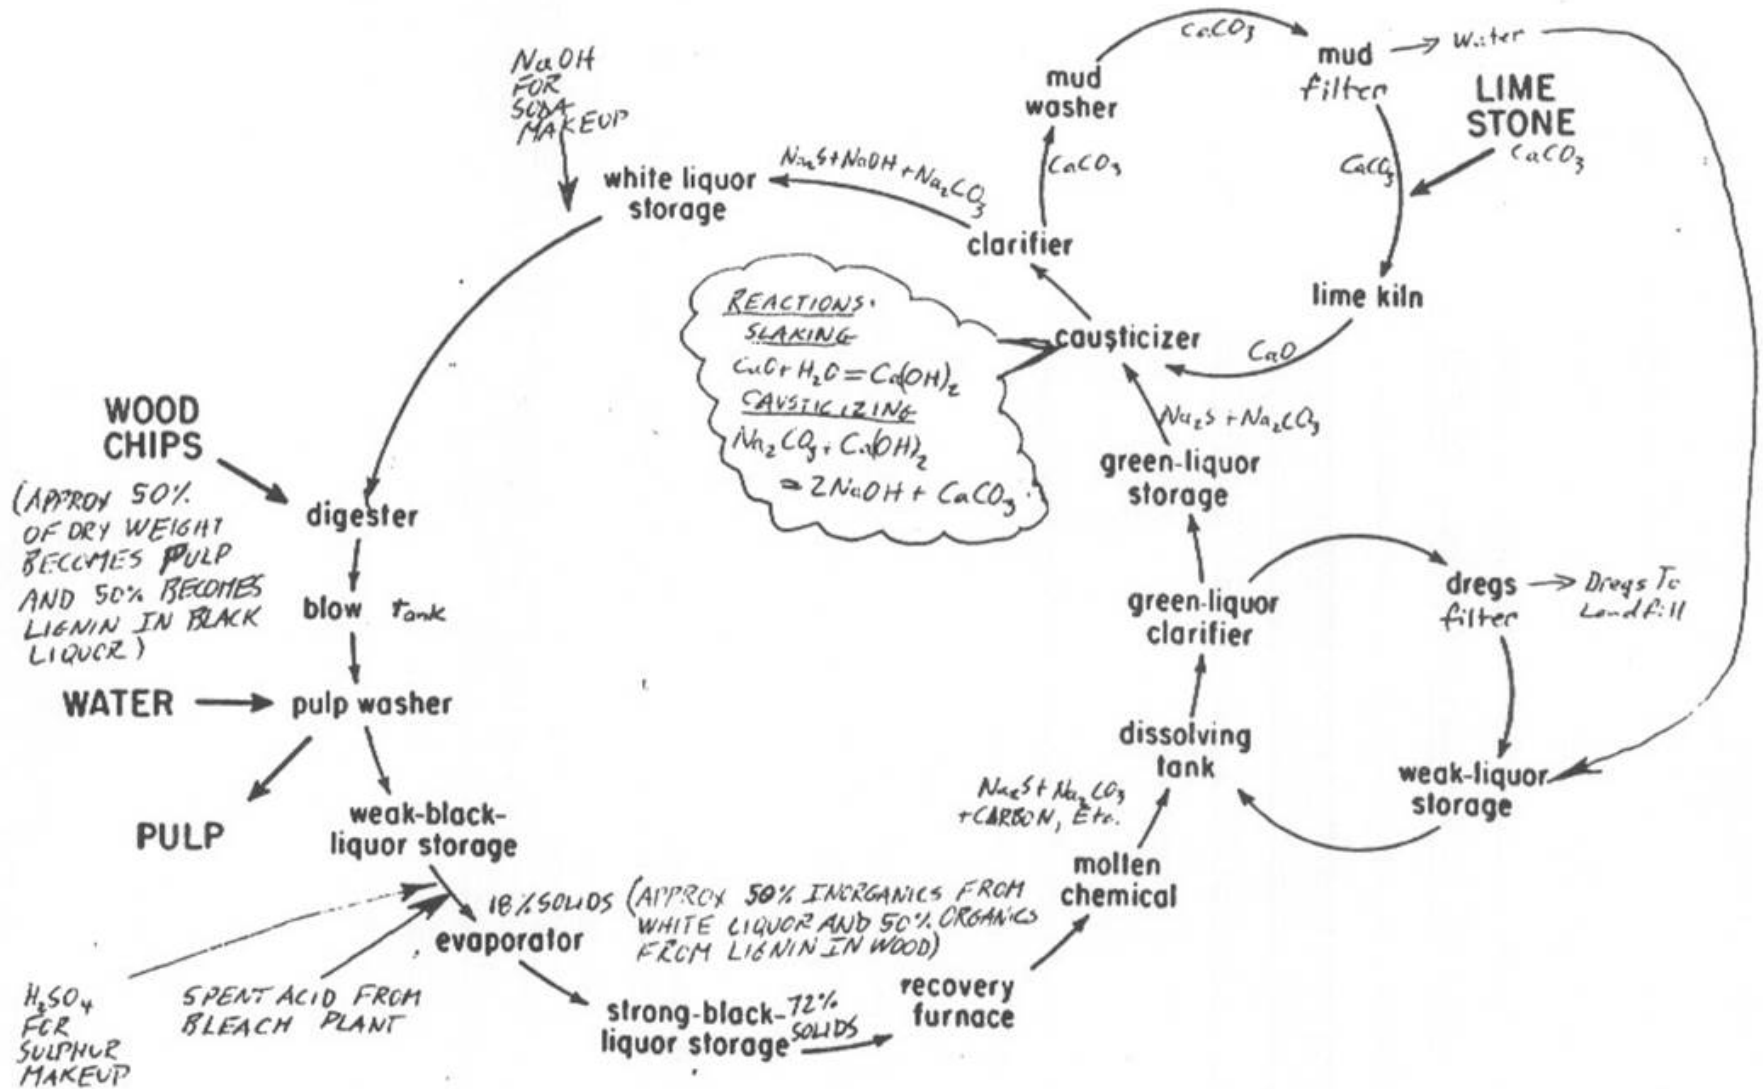 CaCO3
mud
filter
Water
LIME
STONE
CaCO3
mud
washer
CaCO3
CaCO3
NaOH
FOR
SODA
MAKEUP
Na2S+NaOH+Na2CO3
white liquor
storage
clarifier
lime kiln
REACTIONS.
SLAKING
CaO+H2O=Ca(OH)2
CAUSTICIZING
Na2CO3+Ca(OH)2
=2NaOH+CaCO3.
causticizer
CaO
Na2S+Na2CO3
green-liquor
storage
WOOD
CHIPS
(APPROX 50%
OF DRY WEIGHT
BECOMES PULP
AND 50% BECOMES
LIGNIN IN BLACK
LIQUOR)
digester
blow tank
WATER
pulp washer
PULP
green-liquor
clarifier
dregs
filter
Dregs To
Landfill
dissolving
tank
weak-liquor
storage
Na2S+Na2CO3
+CARBON, Etc.
molten
chemical
weak-black-
liquor storage
18% SOLIDS
(APPROX 50% INORGANICS FROM
WHITE LIQUOR AND 50% ORGANICS
FROM LIGNIN IN WOOD)
evaporator
H2SO4
FOR
SULPHUR
MAKEUP
SPENT ACID FROM
BLEACH PLANT
strong-black-
liquor storage
72%
SOLIDS
recovery
furnace